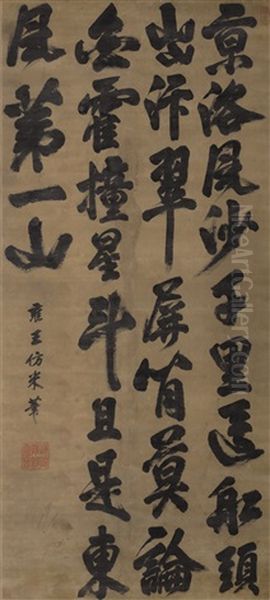 京洛風沙千里還船頭
出汴翠屏間莫論
衡霍撞星斗且是東
南第一山
雍王仿米筆
NiceArtGallery.com